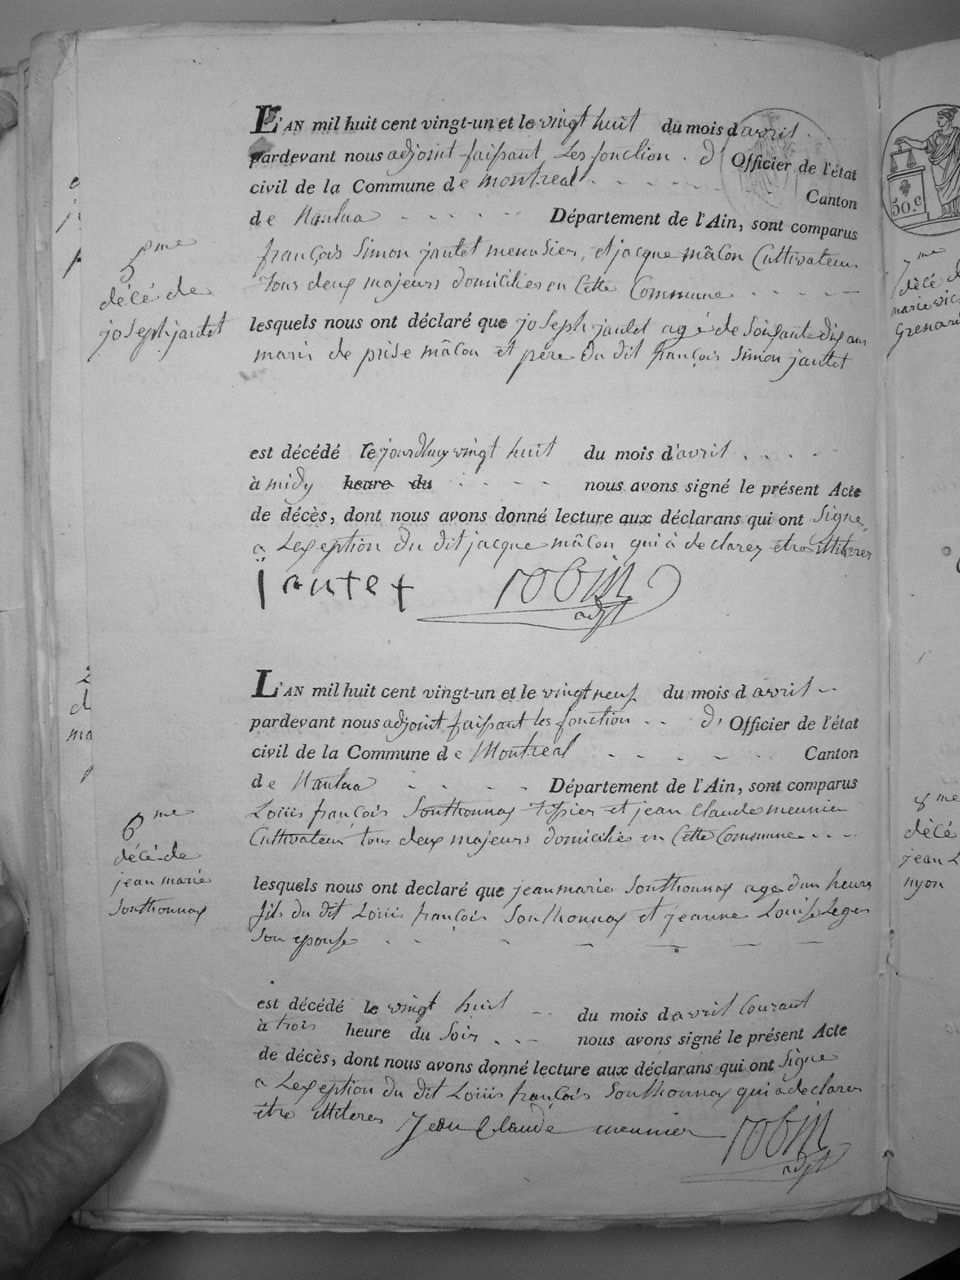 L'AN mil huit cent vingt-un et le vingt huit du mois d avril
pardevant nous adjoint faissant les fonction d' Officier de l'état
civil de la Commune de montreal Canton
de Nantua Département de l'Ain, sont comparus
françois Simon jantet menusier, et jacque mâcon Cultivateur
tous deux majeurs domiciliés en Cette Commune
5me
décé de
joseph jantet
lesquels nous ont déclaré que joseph jantet agé de soixante dix ans
maris de prise mâcon et père du dit françois Simon jantet
est décédé le jourdhuy vingt huit du mois d'avril
à midy heure du nous avons signé le présent Acte
de décès, dont nous avons donné lecture aux déclarans qui ont Signe,
a Lexception du dit jacque mâcon qui à declarez être illiteres
jantet robin
adjt
L'AN mil huit cent vingt-un et le vingt neuf du mois d avril
pardevant nous adjoint faissant les fonction d' Officier de l'état
civil de la Commune de Montreal Canton
de Nantua Département de l'Ain, sont comparus
Louis françois Southonnax tissier et jean Claude meunier
Cultivateur tous deux majeurs domiciliés en Cette Commune
6me
décé de
jean marie
Southonnax
lesquels nous ont declaré que jean marie Southonnax age d'un heure
fils du dit Louis françois Southonnax et jeanne Louise Leger
Son epouse
est décédé le vingt huit du mois d avril Courant
à trois heure du Soir nous avons signé le présent Acte
de décès, dont nous avons donné lecture aux déclarans qui ont Signe
a Lexception du dit Louis françois Southonnax qui à declarez
être illiteres Jean Claude meunier robin
adjt
50.c
7me
décé d
marie vic
Grenard
8me
décé
jean L
nyon